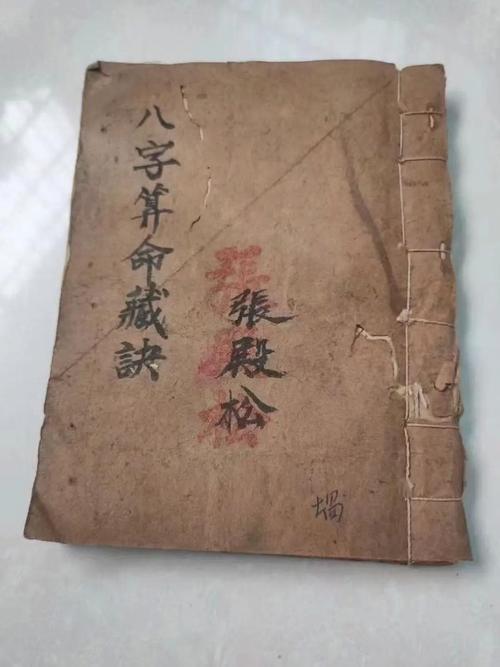 八字算命藏訣
張殿松